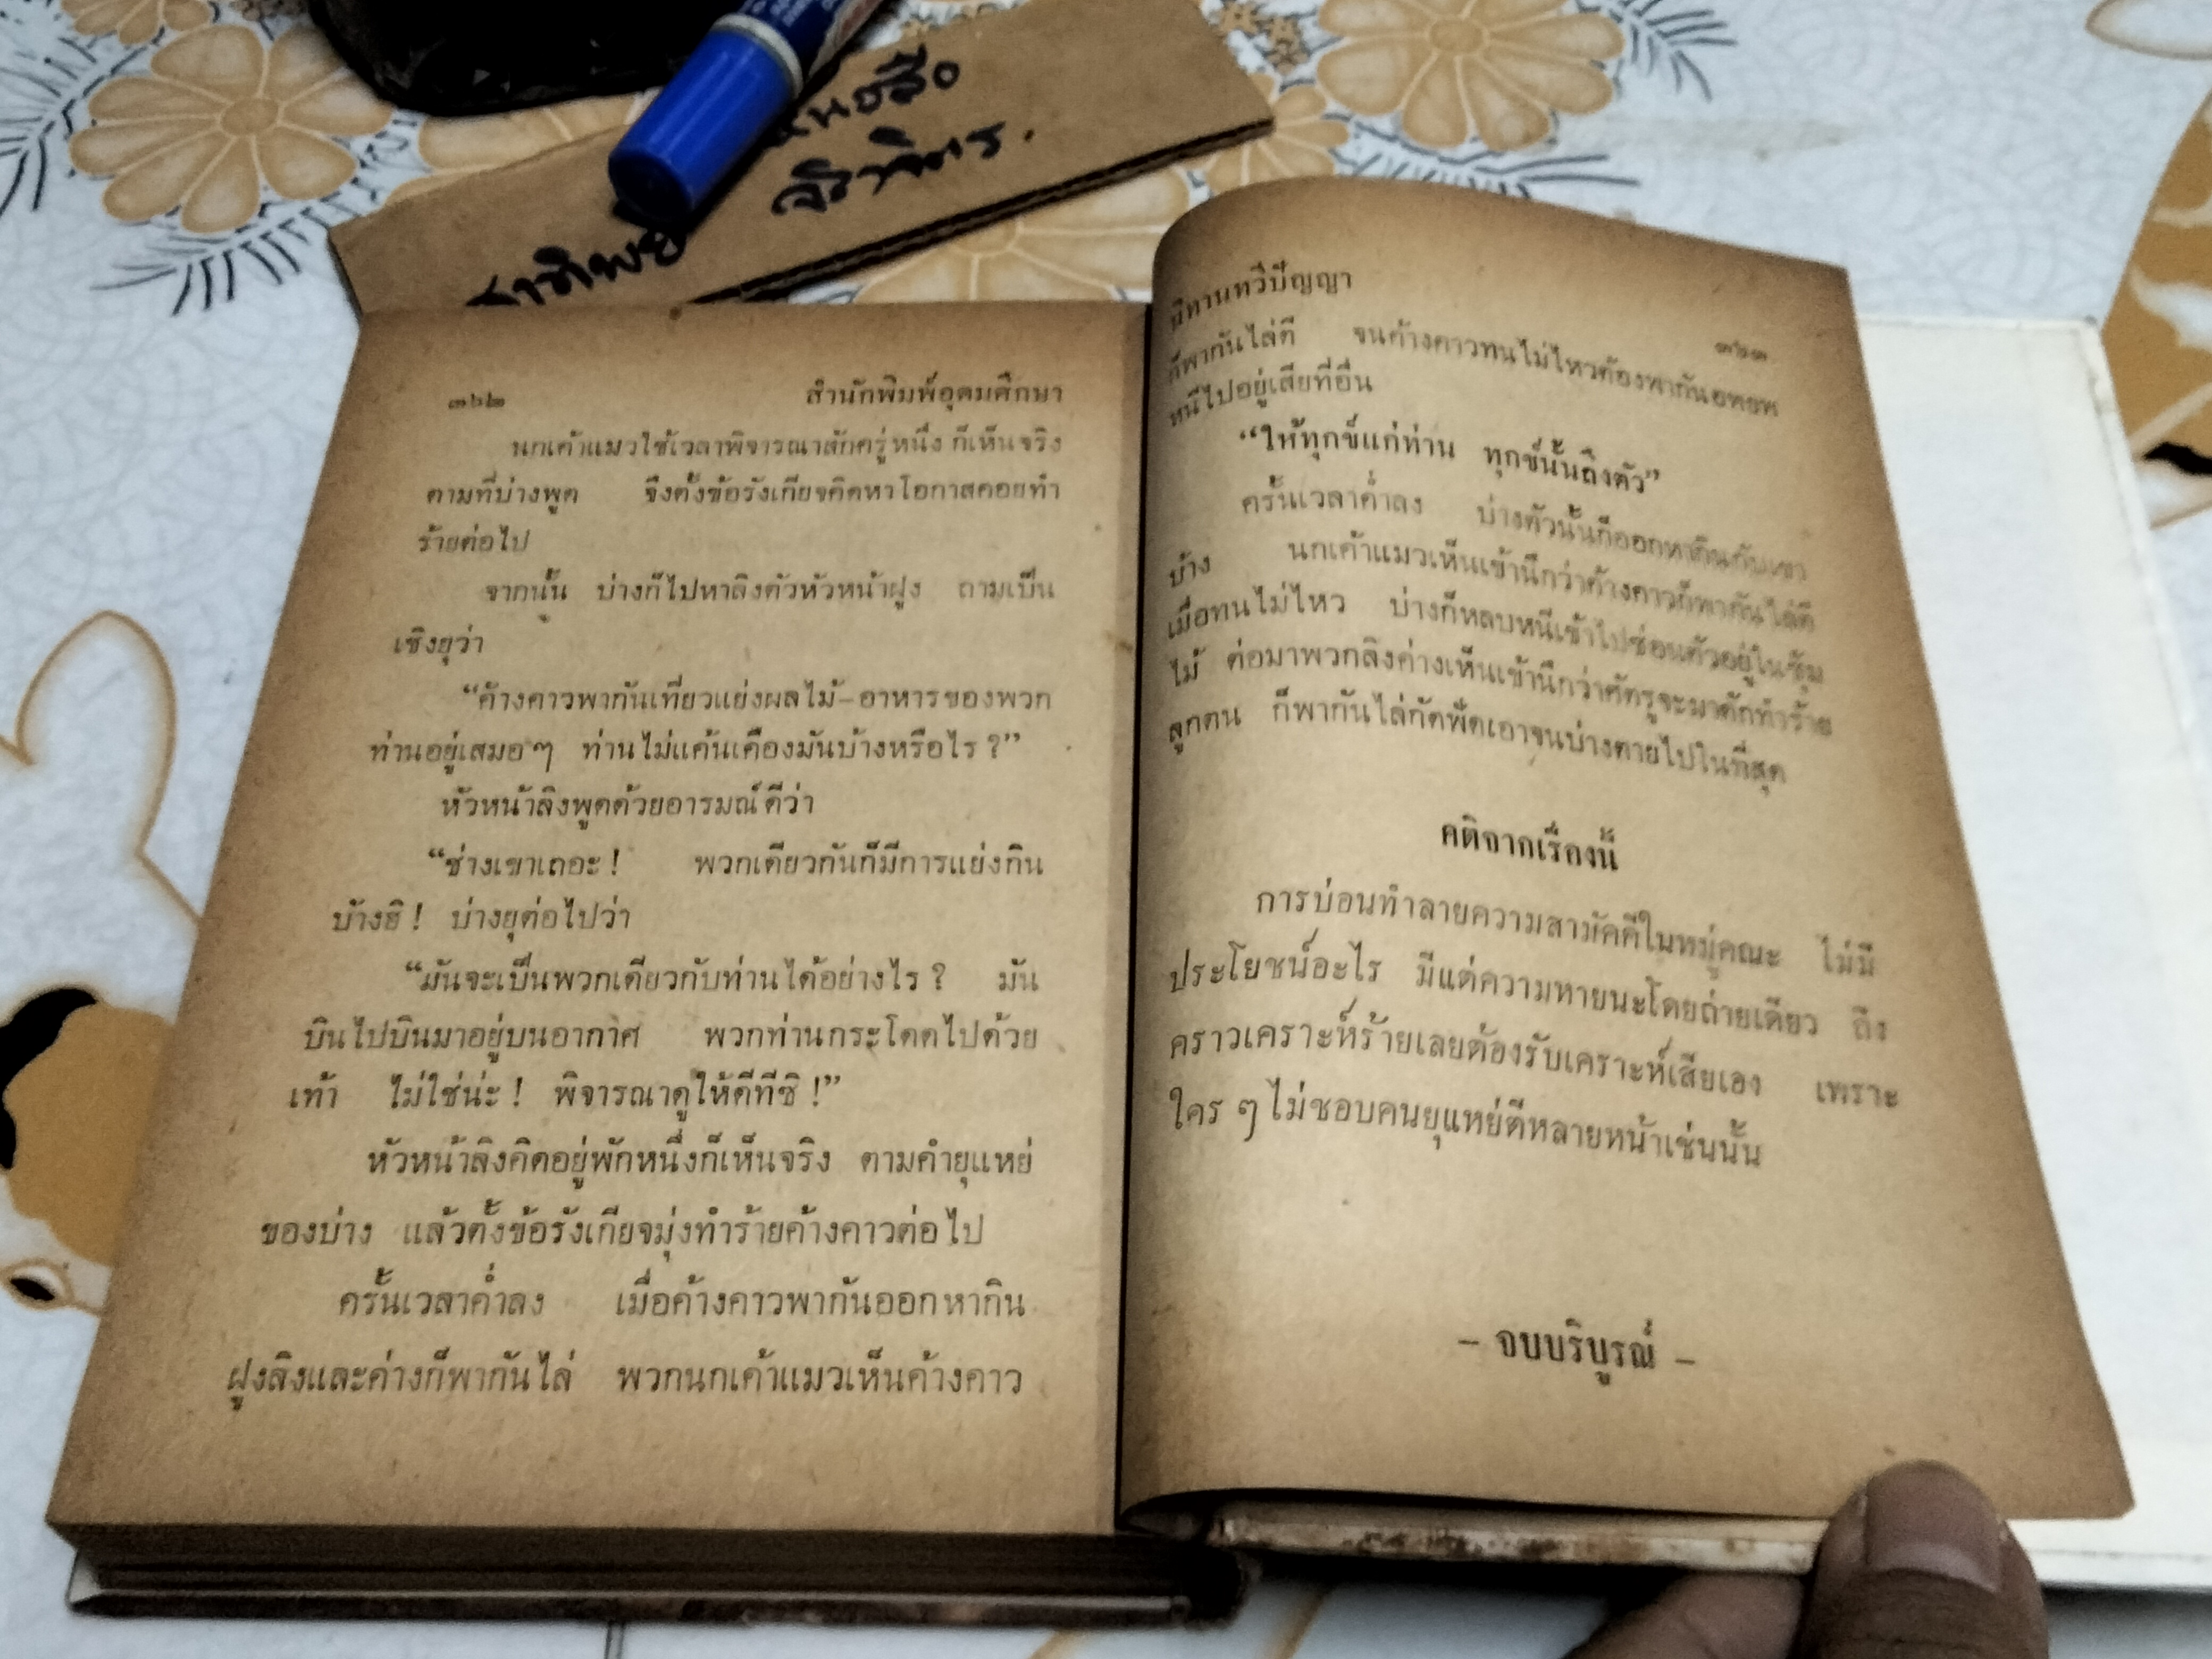 นหังสือ
จิราพิตร.
สาธิเพย์
๓๖๒ สำนักพิมพ์อุดมศึกษา
นกเค้าแมวใช้เวลาพิจารณาสักครู่หนึ่ง ก็เห็นจริง
ตามที่บ่างพูด จึงตั้งข้อรังเกียจคิดหาโอกาสคอยทำ
ร้ายต่อไป
จากนั้น บ่างก็ไปหาลิงตัวหัวหน้าฝูง ถามเป็น
เชิงยุว่า
“ค้างคาวพากันเที่ยวแย่งผลไม้-อาหารของพวก
ท่านอยู่เสมอๆ ท่านไม่แค้นเคืองมันบ้างหรือไร ?”
หัวหน้าลิงพูดด้วยอารมณ์ดีว่า
“ช่างเขาเถอะ ! พวกเดียวกันก็มีการแย่งกิน
บ้างฮิ ! บ่างยุต่อไปว่า
“มันจะเป็นพวกเดียวกับท่านได้อย่างไร ? มัน
บินไปบินมาอยู่บนอากาศ พวกท่านกระโดดไปด้วย
เท้า ไม่ใช่น่ะ ! พิจารณาดูให้ดีทีซิ !”
หัวหน้าลิงคิดอยู่พักหนึ่งก็เห็นจริง ตามคำยุแหย่
ของบ่าง แล้วตั้งข้อรังเกียจมุ่งทำร้ายค้างคาวต่อไป
ครั้นเวลาค่ำลง เมื่อค้างคาวพากันออกหากิน
ฝูงลิงและค่างก็พากันไล่ พวกนกเค้าแมวเห็นค้างคาว
นิทานทวีปัญญา ๓๖๓
ก็พากันไล่ตี จนค้างคาวทนไม่ไหวต้องพากันอพยพ
หนีไปอยู่เสียที่อื่น
“ให้ทุกข์แก่ท่าน ทุกข์นั้นถึงตัว”
ครั้นเวลาค่ำลง บ่างตัวนั้นก็ออกหากินกับเขา
บ้าง นกเค้าแมวเห็นเข้านึกว่าค้างคาวก็พากันไล่ตี
เมื่อทนไม่ไหว บ่างก็หลบหนีเข้าไปซ่อนตัวอยู่ในซุ้ม
ไม้ ต่อมาพวกลิงค่างเห็นเข้านึกว่าศัตรูจะมาดักทำร้าย
ลูกตน ก็พากันไล่กัดฟัดเอาจนบ่างตายไปในที่สุด
คติจากเรื่องนี้
การบ่อนทำลายความสามัคคีในหมู่คณะ ไม่มี
ประโยชน์อะไร มีแต่ความหายนะโดยถ่ายเดียว ถึง
คราวเคราะห์ร้ายเลยต้องรับเคราะห์เสียเอง เพราะ
ใคร ๆ ไม่ชอบคนยุแหย่ตีหลายหน้าเช่นนั้น
– จบบริบูรณ์ –